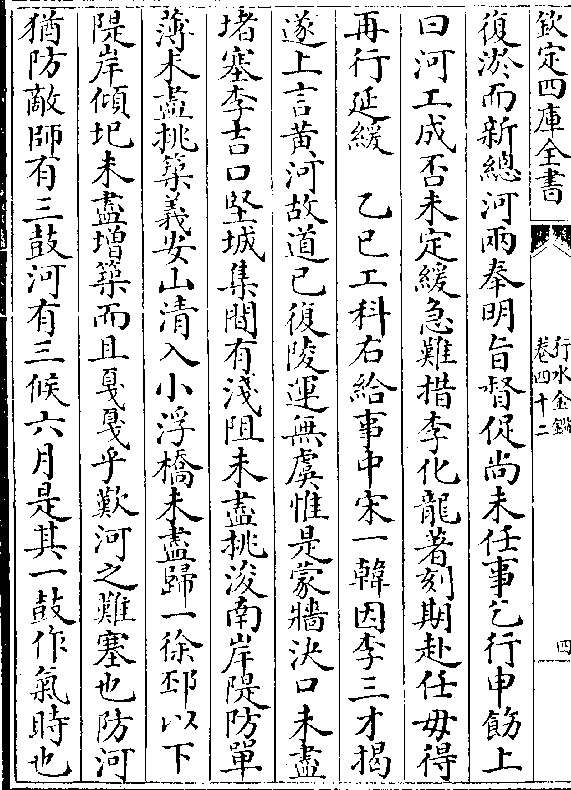 欽定四庫全書
行水金鑑
卷四十二
四
復淤而新總河兩奉明旨督促尚未任事乞行申飭上
曰河工成否未定緩急難措李化龍著刻期赴任毋得
再行延緩　乙巳工科右給事中宋一韓因李三才揭
遂上言黄河故道已復陵運無虞惟是蒙牆決口未盡
堵塞李吉口堅城集間有淺阻未盡挑浚南岸隄防單
薄未盡挑築義安山清入小浮橋未盡歸一徐邳以下
隄岸傾圯未盡增築而且戛戛乎歎河之難塞也防河
猶防敵師有三鼓河有三候六月是其一鼓作氣時也